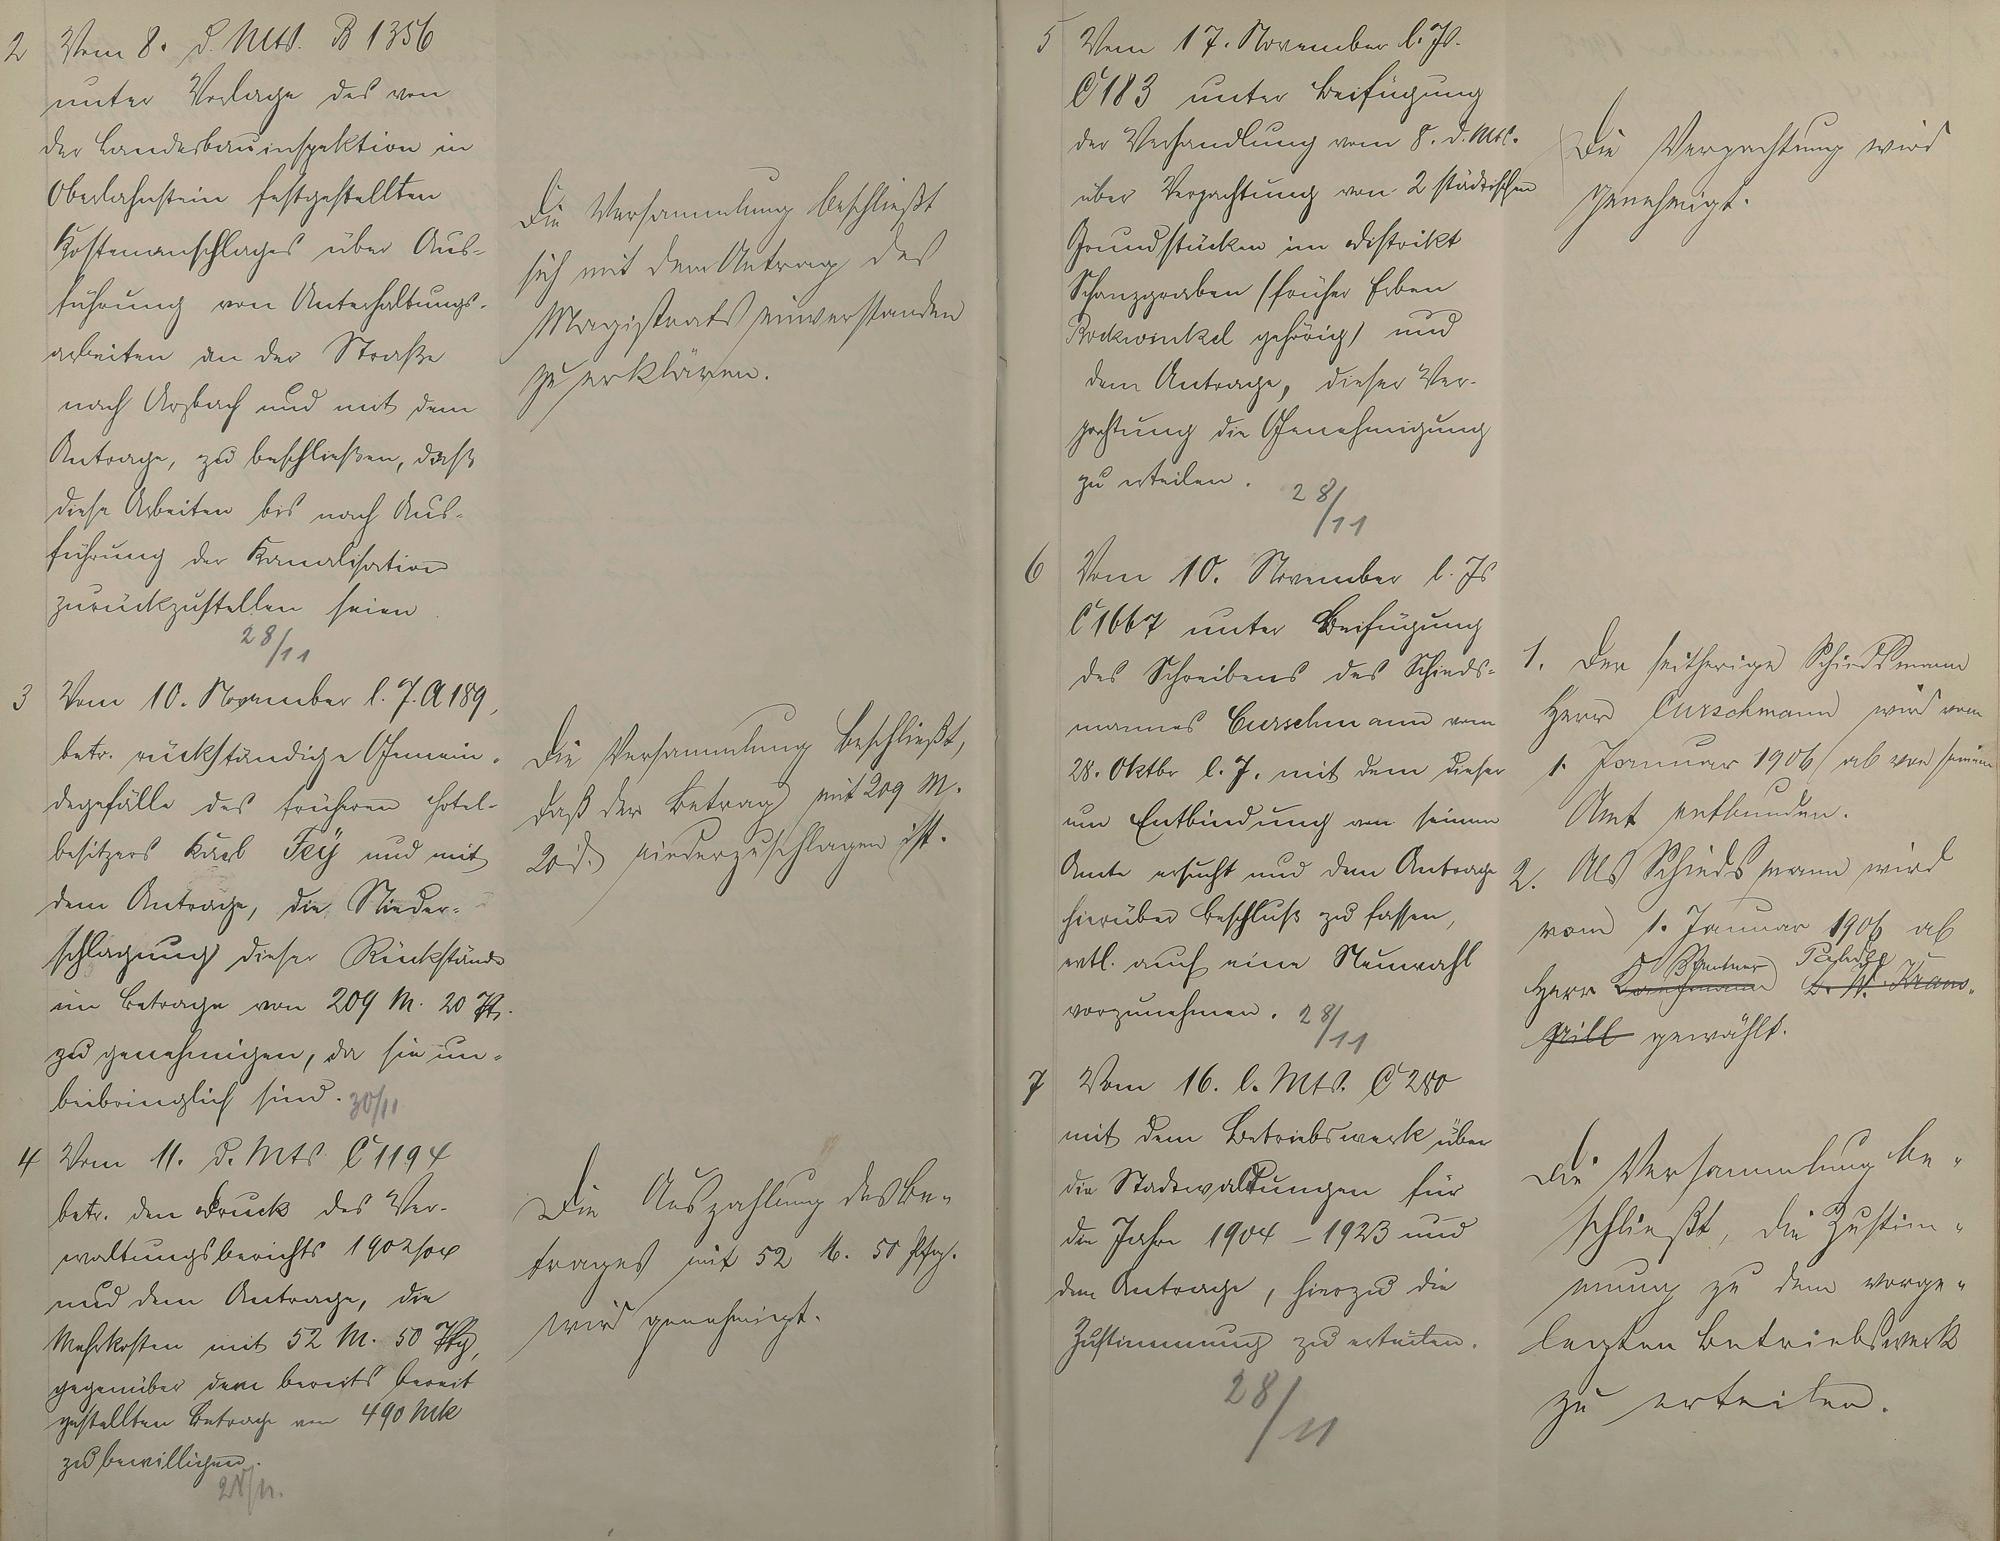 2 Vom 8. d. Mts. B 1356
unter Vorlage des von
der Landesbauinspektion in
Oberlahnstein festgestellten
Kostenanschlages über Aus-
führung von Unterhaltungs-
arbeiten an der Straße
nach Arzbach und mit dem
Antrage, zu beschließen, daß
diese Arbeiten bis nach Aus-
führung der Kanalisation
zurückzustellen seien
28/11
Die Versammlung beschließt
sich mit dem Antrag des
Magistrats einverstanden
zu erklären.
3 Vom 10. November l. J. A 189,
betr. rückständige Gemein-
degefälle des früheren Hotel-
besitzers Karl Fey und mit
dem Antrage, die Nieder-
schlagung dieser Rückstände
im Betrage von 209 M. 20 Pf.
zu genehmigen, da sie un-
beibringlich sind. 30/11
Die Versammlung beschließt,
daß der Betrag mit 209 M.
20 niederzuschlagen ist.
4 Vom 11. d. Mts C 1194
betr. den Druck des Ver-
waltungsberichts 1902/04
und dem Antrage, die
Mehrkosten mit 52 M. 50 Pfg,
gegenüber dem bereits bereit
gestellten Betrage von 490 Mk
zu bewilligen.
28/11.
Die Auszahlung des Be-
trages mit 52 M. 50 Pfg.
wird genehmigt.
5 Vom 17. November l. Js.
C 183 unter Beifügung
der Verhandlung vom 8. d. Mts.
über Verpachtung von 2 städtischen
Grundstücken im Distrikt
Schanzgraben (früher Erben
Bockwinkel gehörig) und
dem Antrage, dieser Ver-
pachtung die Genehmigung
zu erteilen.
28/11
Die Verpachtung wird
genehmigt.
6 Vom 10. November l. Js
C 1667 unter Beifügung
des Schreibens des Schieds-
mannes Curschmann vom
28. Oktbr l. J. mit dem dieser
um Entbindung von seinem
Amte ersucht und dem Antrage
hierüber Beschluß zu fassen,
evtl. auch eine Neuwahl
vorzunehmen. 28/11
1. Der seitherige Schiedsmann
Herr Curschmann wird vom
1. Januar 1906 ab von seinem
Amt entbunden.
2. Als Schiedsmann wird
vom 1. Januar 1906 ab
Rentner
Herr Kaufmann
gewählt.
7 Vom 16. l. Mts. C 280
mit dem Betriebswerk über
die Stadtwaldungen für
die Jahre 1904 - 1923 und
dem Antrage, hierzu die
Zustimmung zu erteilen.
28/11
Die Versammlung be-
schließt, die Zustim-
mung zu dem vorge-
legten Betriebswerk
zu erteilen.